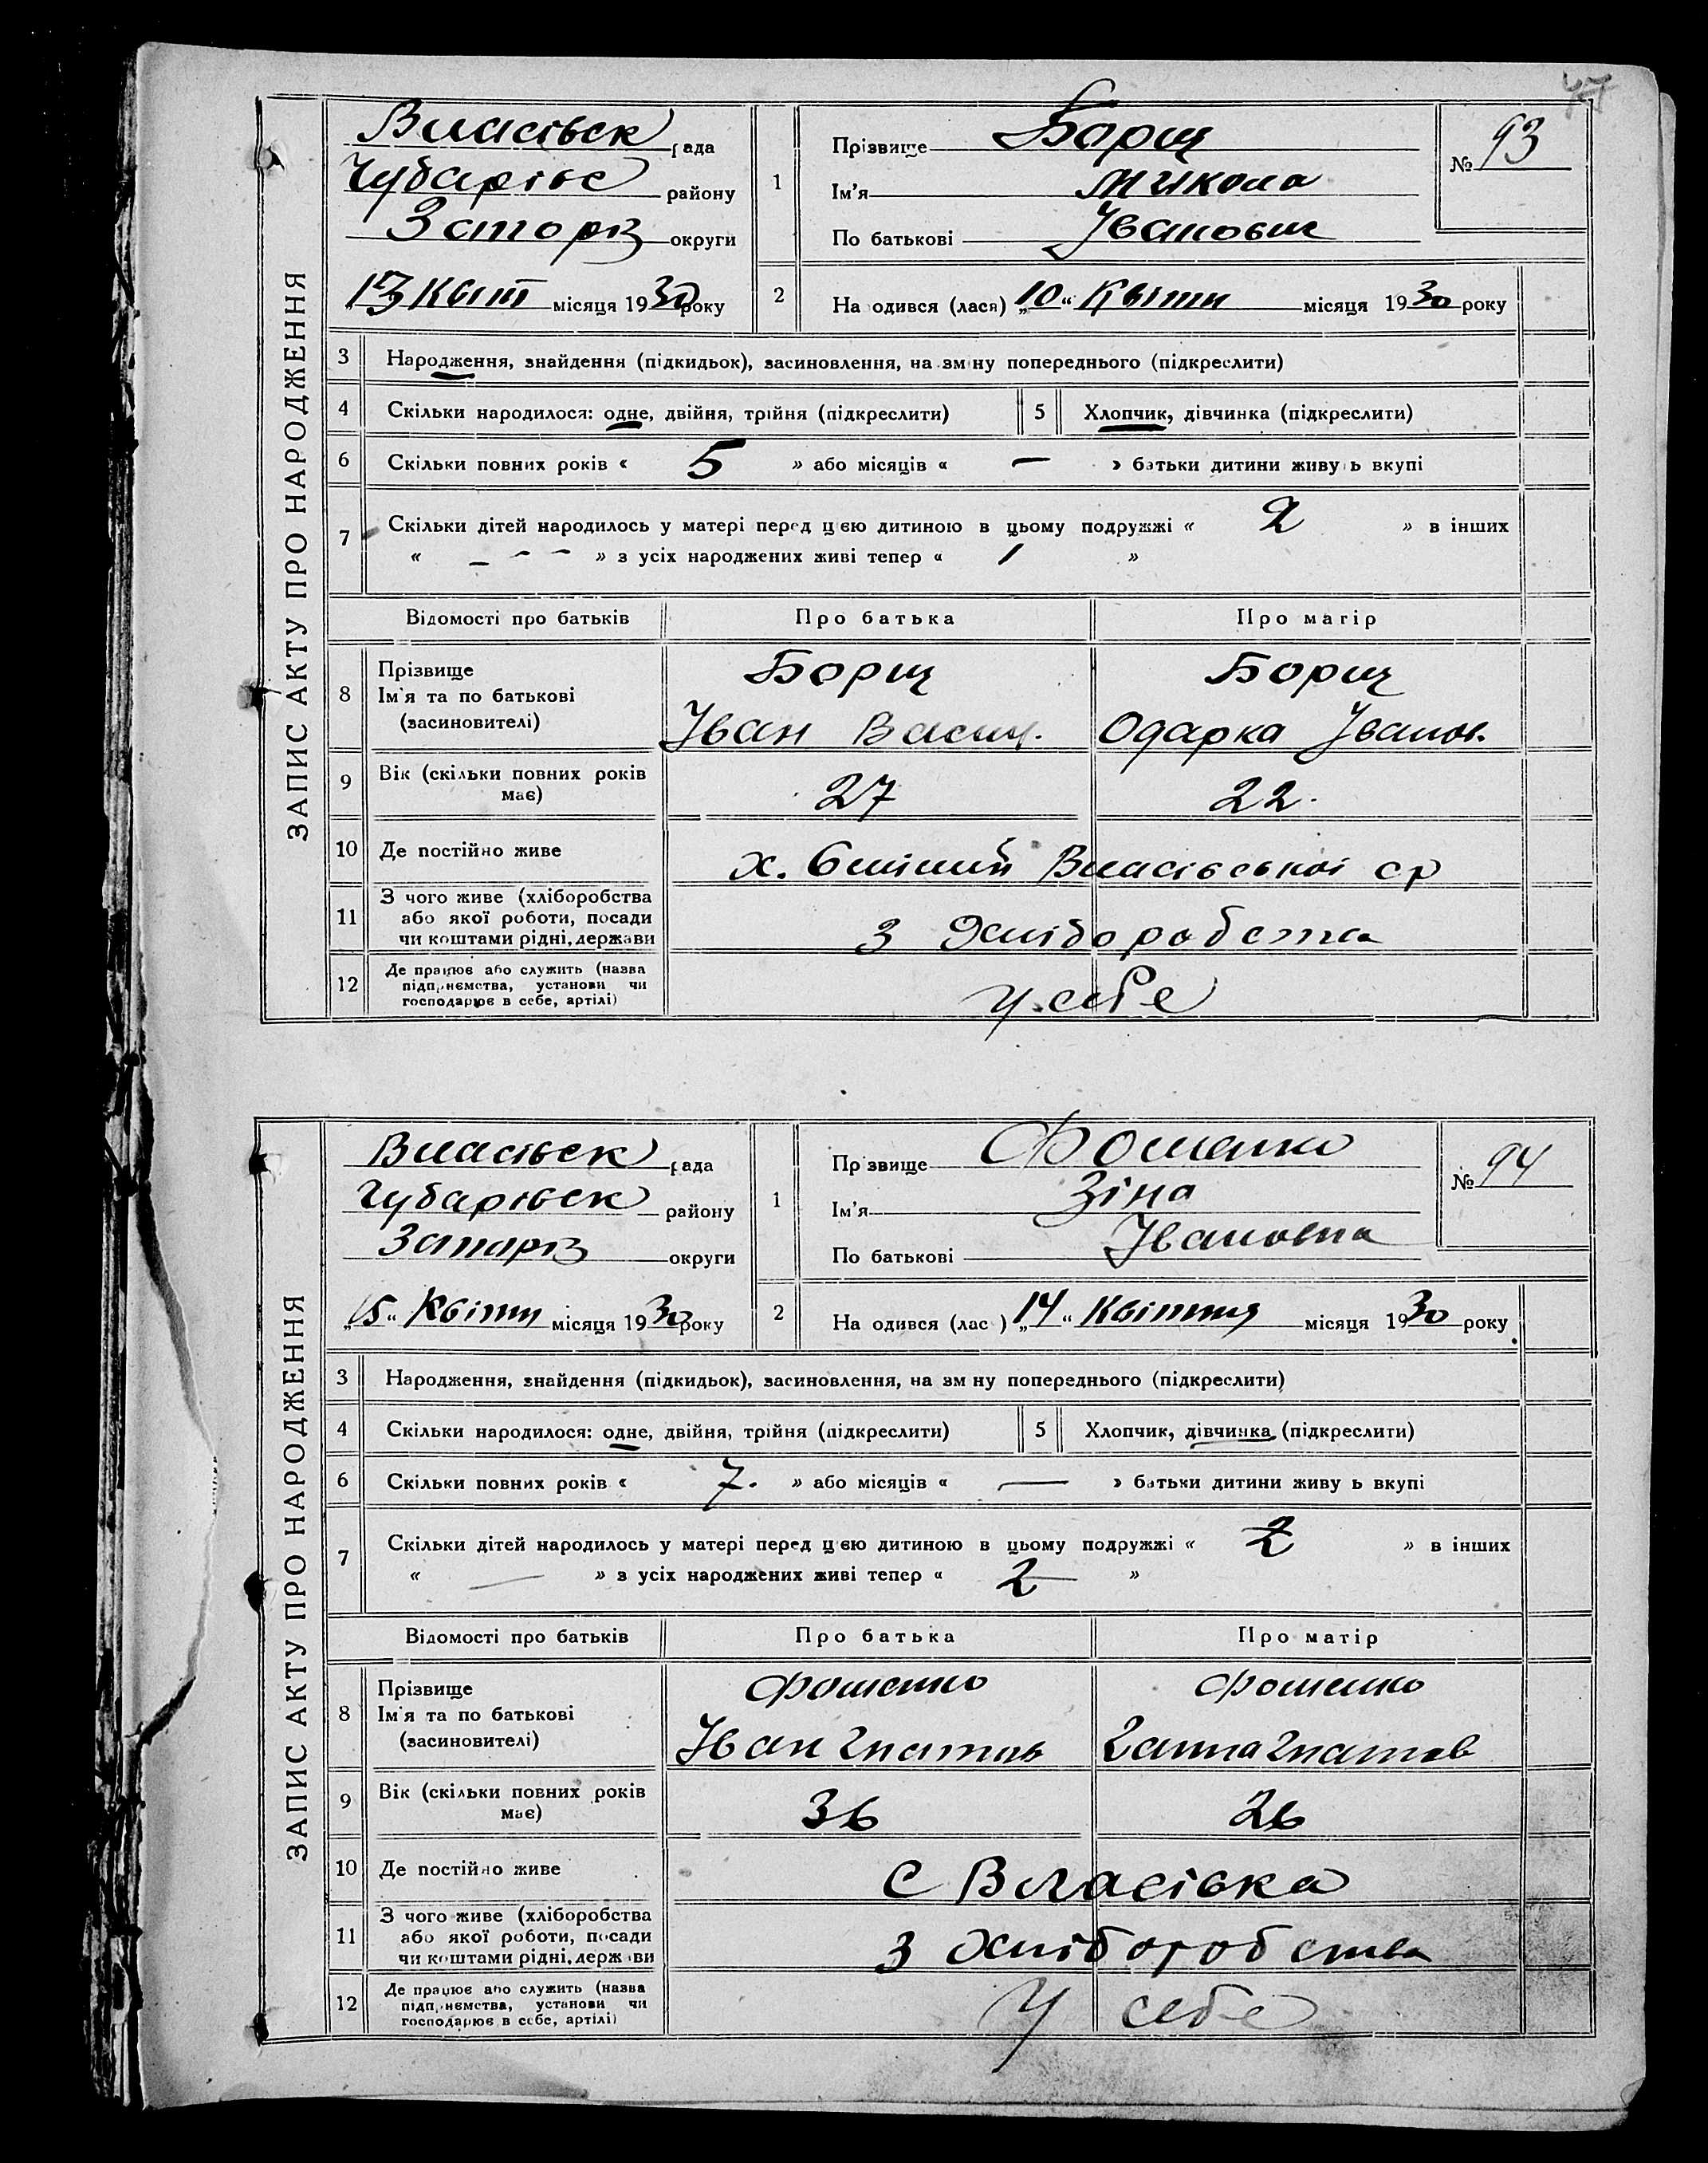 47
ЗАПИС АКТУ ПРО НАРОДЖЕННЯ
Власівськ рада
Чубарівс району
Запоріз округи
13 Квіт місяця 1930 року
1
Прізвище Борщ
Ім'я Микола
По батькові Іванович
№ 93
2
На одився (лася) „10“ Квітн місяця 1930 року
3 Народження, знайдення (підкидьок), засиновлення, на зміну попереднього (підкреслити)
4 Скільки народилося: одне, двійня, трійня (підкреслити) 5 Хлопчик, дівчинка (підкреслити)
6 Скільки повних років « 5 » або місяців « — » батьки дитини живу ь вкупі
7 Скільки дітей народилось у матері перед цією дитиною в цьому подружжі « 2 » в інших
« - - - » з усіх народжених живі тепер « 1 »
Відомості про батьків Про батька Про матір
8 Прізвище
Ім'я та по батькові
(засиновителі)
Борщ Борщ
Іван Васил. Одарка Іванов.
9 Вік (скільки повних років
має)
27 22.
10 Де постійно живе х. Власівської ср
11 З чого живе (хліборобства
або якої роботи, посади
чи коштами рідні, держави
з Хліборобства
12 Де працює або служить (назва
підприємства, установи чи
господарює в себе, артілі)
у себе
ЗАПИС АКТУ ПРО НАРОДЖЕННЯ
Власівськ рада
Чубарівськ району
Запоріз округи
„15“ Квітн місяця 1930 року
1
Пр звище Фоменко
Ім'я Зіна
По батькові Івановна
№ 94
2
На одився (лас ) „14“ Квітня місяця 1930 року
3 Народження, знайдення (підкидьок), засиновлення, на зм ну попереднього (підкреслити)
4 Скільки народилося: одне, двійня, трійня (підкреслити) 5 Хлопчик, дівчинка (підкреслити)
6 Скільки повних років « 7. » або місяців « — » батьки дитини живу ь вкупі
7 Скільки дітей народилось у матері перед цією дитиною в цьому подружжі « 2 » в інших
« — » з усіх народжених живі тепер « 2 »
Відомості про батьків Про батька Про матір
8 Прізвище
Ім'я та по батькові
(засиновителі)
Фоменко Фоменко
Іван Гнатов Ганна Гнатов
9 Вік (скільки повних років
має)
36 26
10 Де постійно живе С Власівка
11 З чого живе (хліборобства
або якої роботи, посади
чи коштами рідні, держави
з Хліборобства
12 Де працює або служить (назва
підприємства, установи чи
господарює в себе, артілі)
У себе